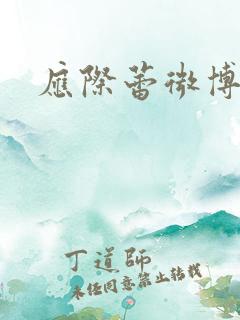 应际蕾微博
丁道師
未经同意禁止转载